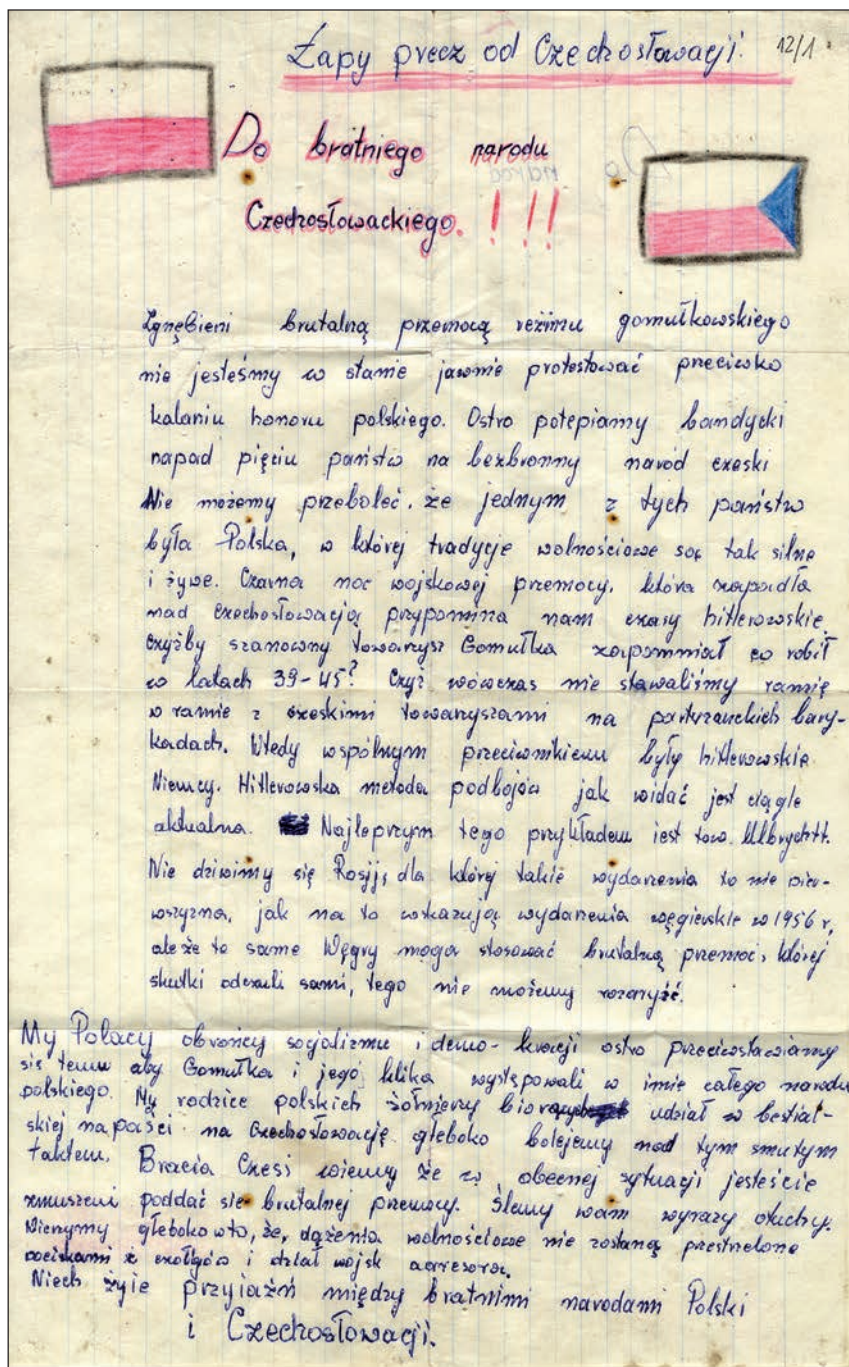 Łapy precz od Czechosłowacji! 12/1
Do bratniego narodu
Czechosłowackiego. !!!
Zgnębieni brutalną przemocą reżimu gomułkowskiego
nie jesteśmy w stanie jawnie protestować przeciwko
kalaniu honoru polskiego. Ostro potepiamy bandycki
napad pięciu państw na bezbronny naród czeski
Nie możemy przeboleć, że jednym z tych państw
była Polska, w której tradycje wolnościowe są tak silne
i żywe. Czarna noc wojskowej przemocy, która zapadła
nad czechosłowacją przypomina nam czasy hitlerowskie.
czyżby szanowny towarzysz Gomułka zapomniał co robił
w latach 39-45? Czyż wówczas nie stawaliśmy ramię
w ramie z czeskimi towarzyszami na partyzanckich bary-
kadach. Wtedy wspólnym przeciwnikiem były hitlerowskie
Niemcy. Hitlerowska metoda podbojów jak widać jest ciągle
aktualna. Najleprzym tego przykładem jest tow. Ulbrychtt.
Nie dziwimy się Rosji, dla której takie wydarzenia to nie pier-
wszyzna, jak na to wskazują wydarzenia węgierskie w 1956 r,
ale że te same Węgry moga stosować brutalną przemoc, której
skutki odczuli sami, tego nie możemy
My Polacy obrońcy socjalizmu i demo-kracji ostro przeciwstawiamy
się temu aby Gomułka i jego klika występowali w imie całego narodu
polskiego. My rodzice polskich żołnierzy udział w bestial-
skiej napaści na Czechosłowację głeboko bolejemy nad tym smutym
faktem. Bracia Czesi wiemy że w obecnej sytuacji jesteście
zmuszeni poddać sie brutalnej przemocy. Ślemy wam wyrazy otuchy.
Wierzymy głeboko wto, że, dążenia wolnościowe nie zostaną przestrzelone
pociskami z czołgów i dział wojsk agresora.
Niech żyie przyiaźń między bratnimi narodami Polski
i Czechosłowacji.